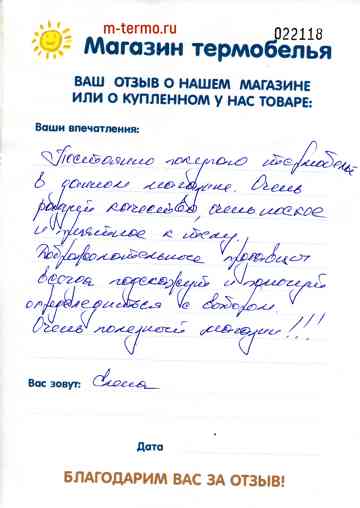 m-termo.ru
022118
Магазин термобелья
ВАШ ОТЗЫВ О НАШЕМ МАГАЗИНЕ
ИЛИ О КУПЛЕННОМ У НАС ТОВАРЕ:
Ваши впечатления:
Постоянно покупаю термобелье
в данном магазине. Очень
качество, очень ноское
и приятное к телу.
Доброжелательные продавцы
всегда подскажут и помогут
определиться с выбором.
Очень полезный магазин!!!
Вас зовут: Елена
Дата
БЛАГОДАРИМ ВАС ЗА ОТЗЫВ!